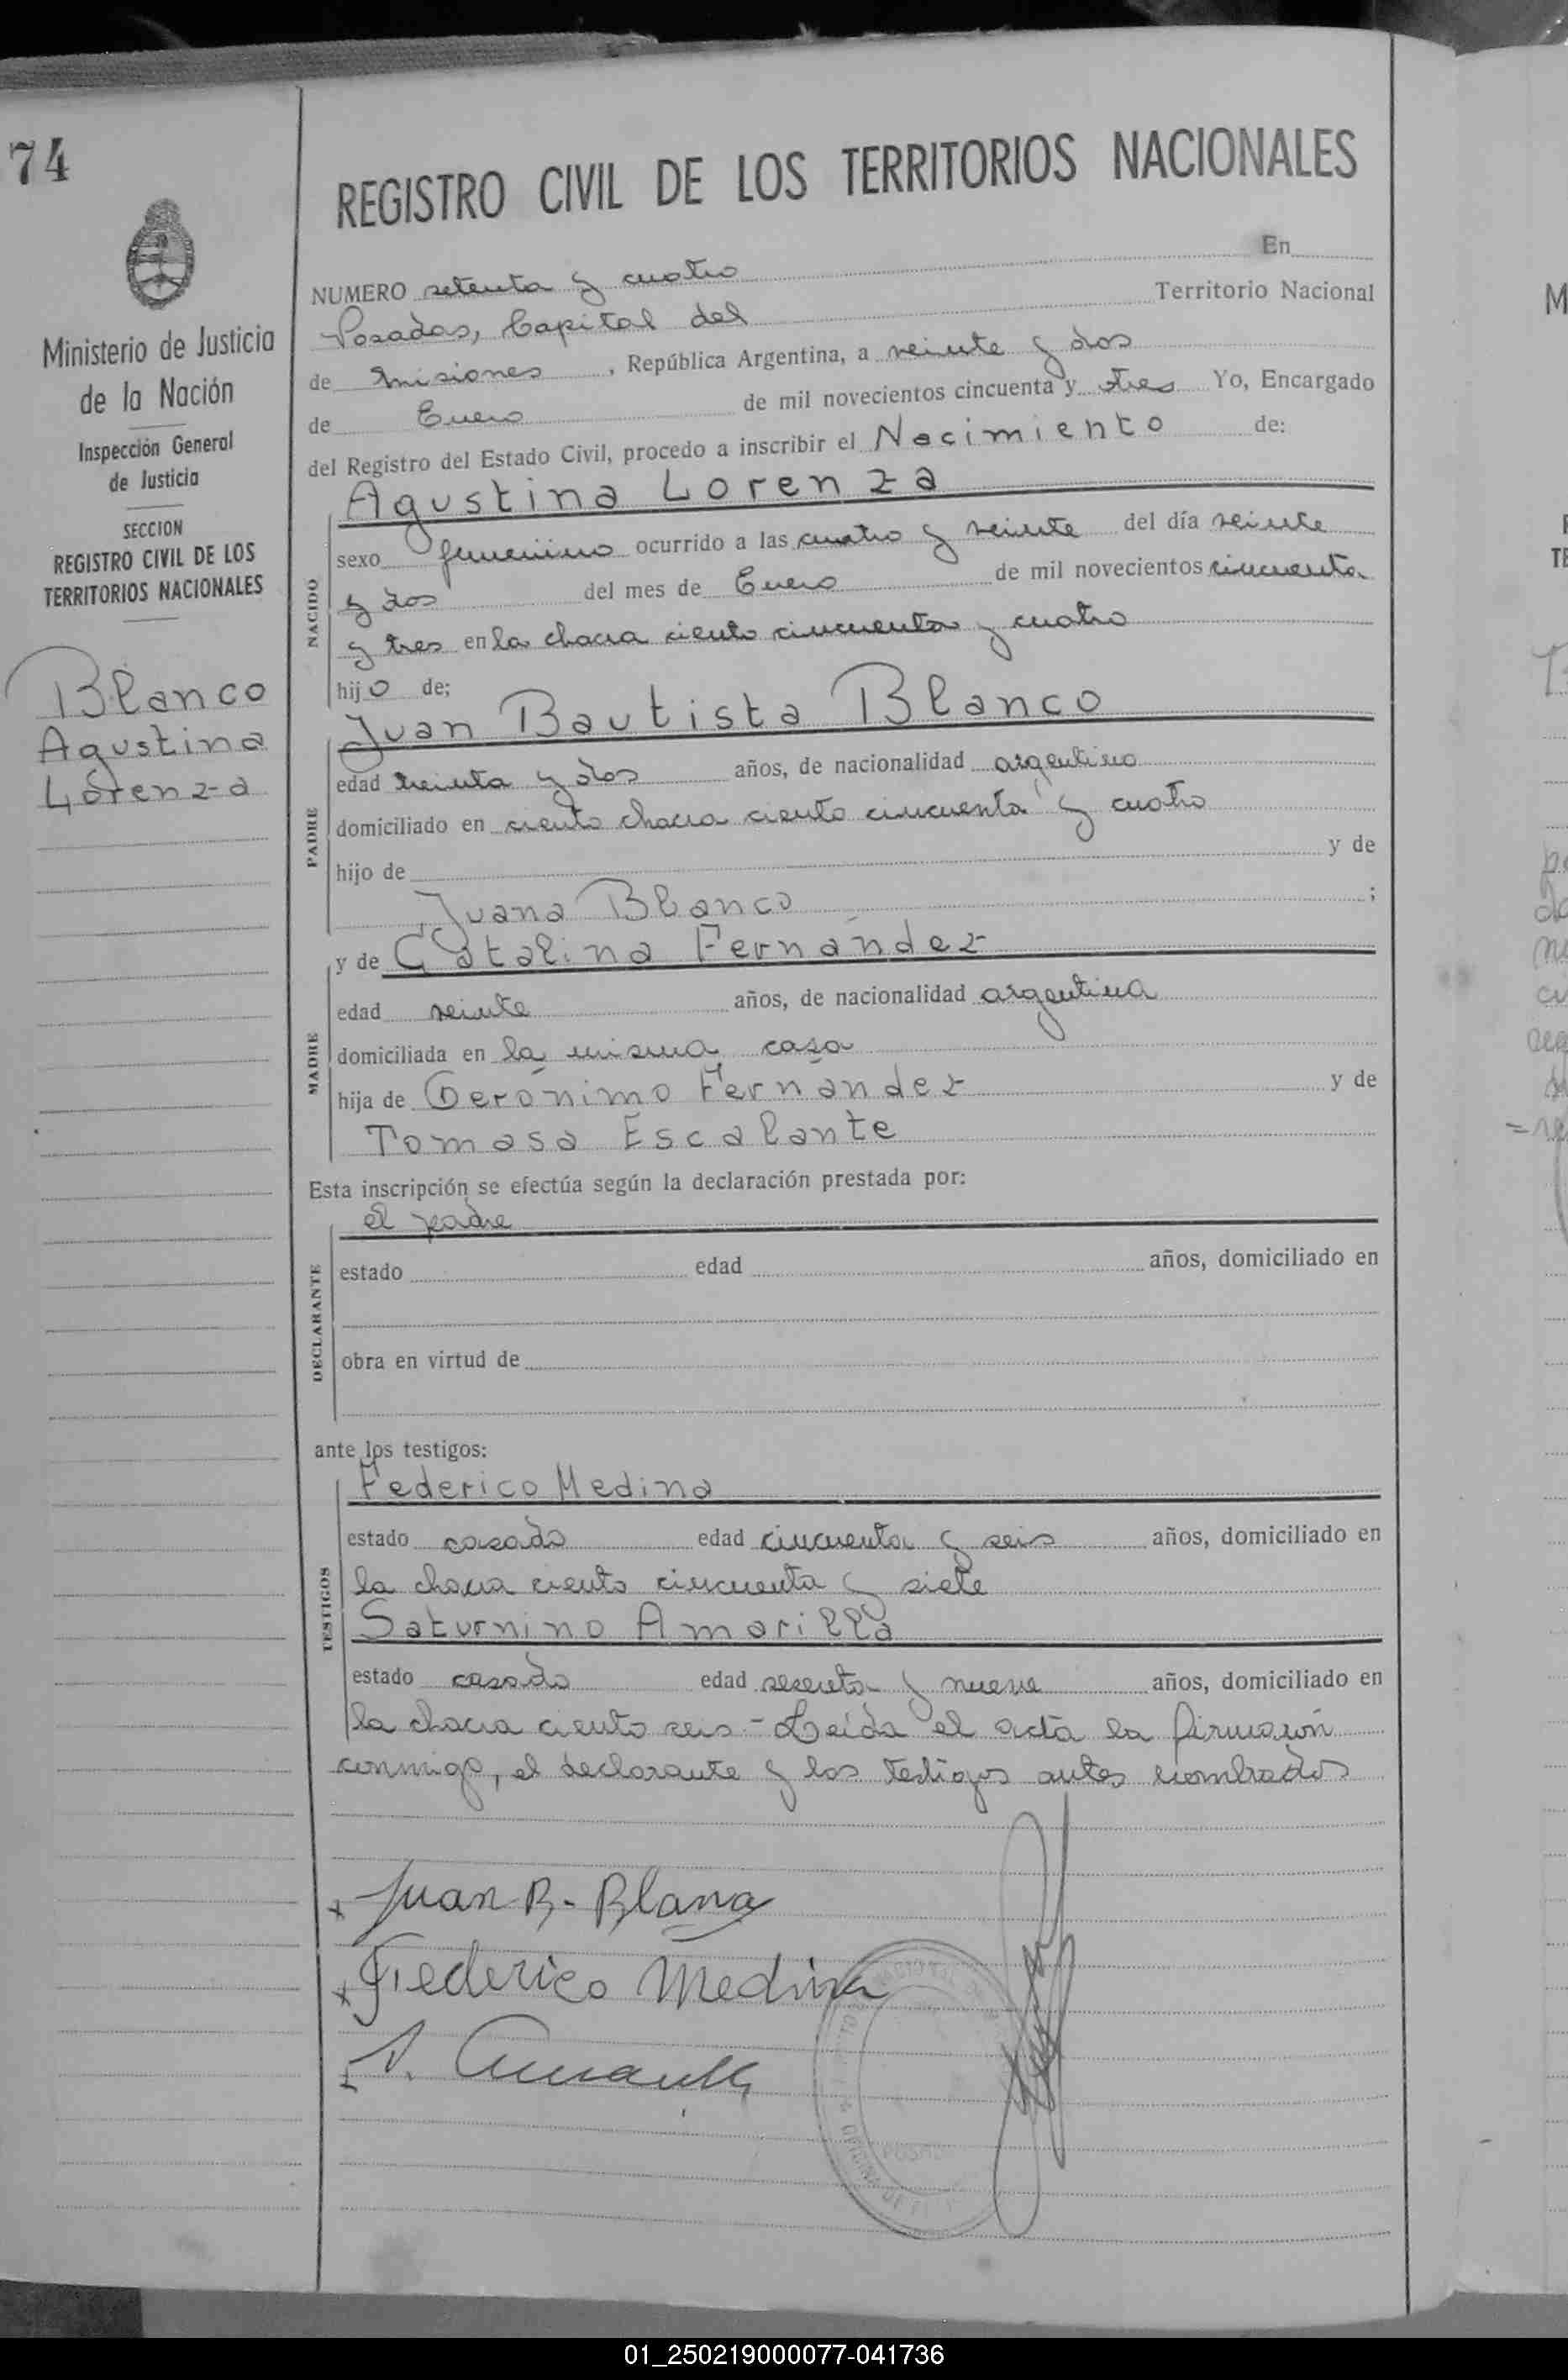 74
Ministerio de Justicia
de la Nación
Inspección General
de Justicia
SECCION
REGISTRO CIVIL DE LOS
TERRITORIOS NACIONALES
Blanco
Agustina
Lorenza
REGISTRO CIVIL DE LOS TERRITORIOS NACIONALES
NUMERO setenta y cuatro En
Posadas, Capital del Territorio Nacional
de Misiones , República Argentina, a veinte y dos
de Enero de mil novecientos cincuenta y tres Yo, Encargado
del Registro del Estado Civil, procedo a inscribir el Nacimiento de:
Agustina Lorenza
NACIDO
sexo femenino ocurrido a las cuatro y veinte del día veinte
y dos del mes de Enero de mil novecientos cincuenta
y tres en la chacra ciento cincuenta y cuatro
hijo de;
Juan Bautista Blanco
PADRE
edad treinta y dos años, de nacionalidad argentino
domiciliado en ciento chacra ciento cincuenta y cuatro
hijo de y de
Juana Blanco ;
y de Catalina Fernández
MADRE
edad veinte años, de nacionalidad argentina
domiciliada en la misma casa
hija de Gerónimo Fernández y de
Tomasa Escalante
Esta inscripción se efectúa según la declaración prestada por:
el padre
DECLARANTE
estado edad años, domiciliado en
obra en virtud de
ante los testigos:
Federico Medina
TESTIGOS
estado casado edad cincuenta y seis años, domiciliado en
la chacra ciento cincuenta y siete
Saturnino Amarilla
estado casado edad sesenta y nueve años, domiciliado en
la chacra ciento seis - Leída el acta la firmaron
conmigo, el declarante y los testigos antes nombrados
x Juan B. Blanco
x Federico Medina
S. Amarilla
01_250219000077-041736